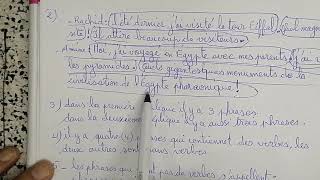 2)
- Rachid: L'été dernier, j'ai visité la tour Eiffel. Quel magn
site! Il attire beaucoup de visiteurs.
- Amine: Moi, j'ai voyagé en Egypte avec mes parents.
les pyramides. Quels gigantesques monuments de la
civilisation de l'Egypte pharaonique!
3) dans la première réplique il y a 3 phrases
dans la deuxième réplique il y a aussi trois phrases.
4) il y a quatre(4) phrases qui contiennent des verbes, les
deux autres sont sans verbes
5 - les phrases qui n'ont pas de verbes s'appellent